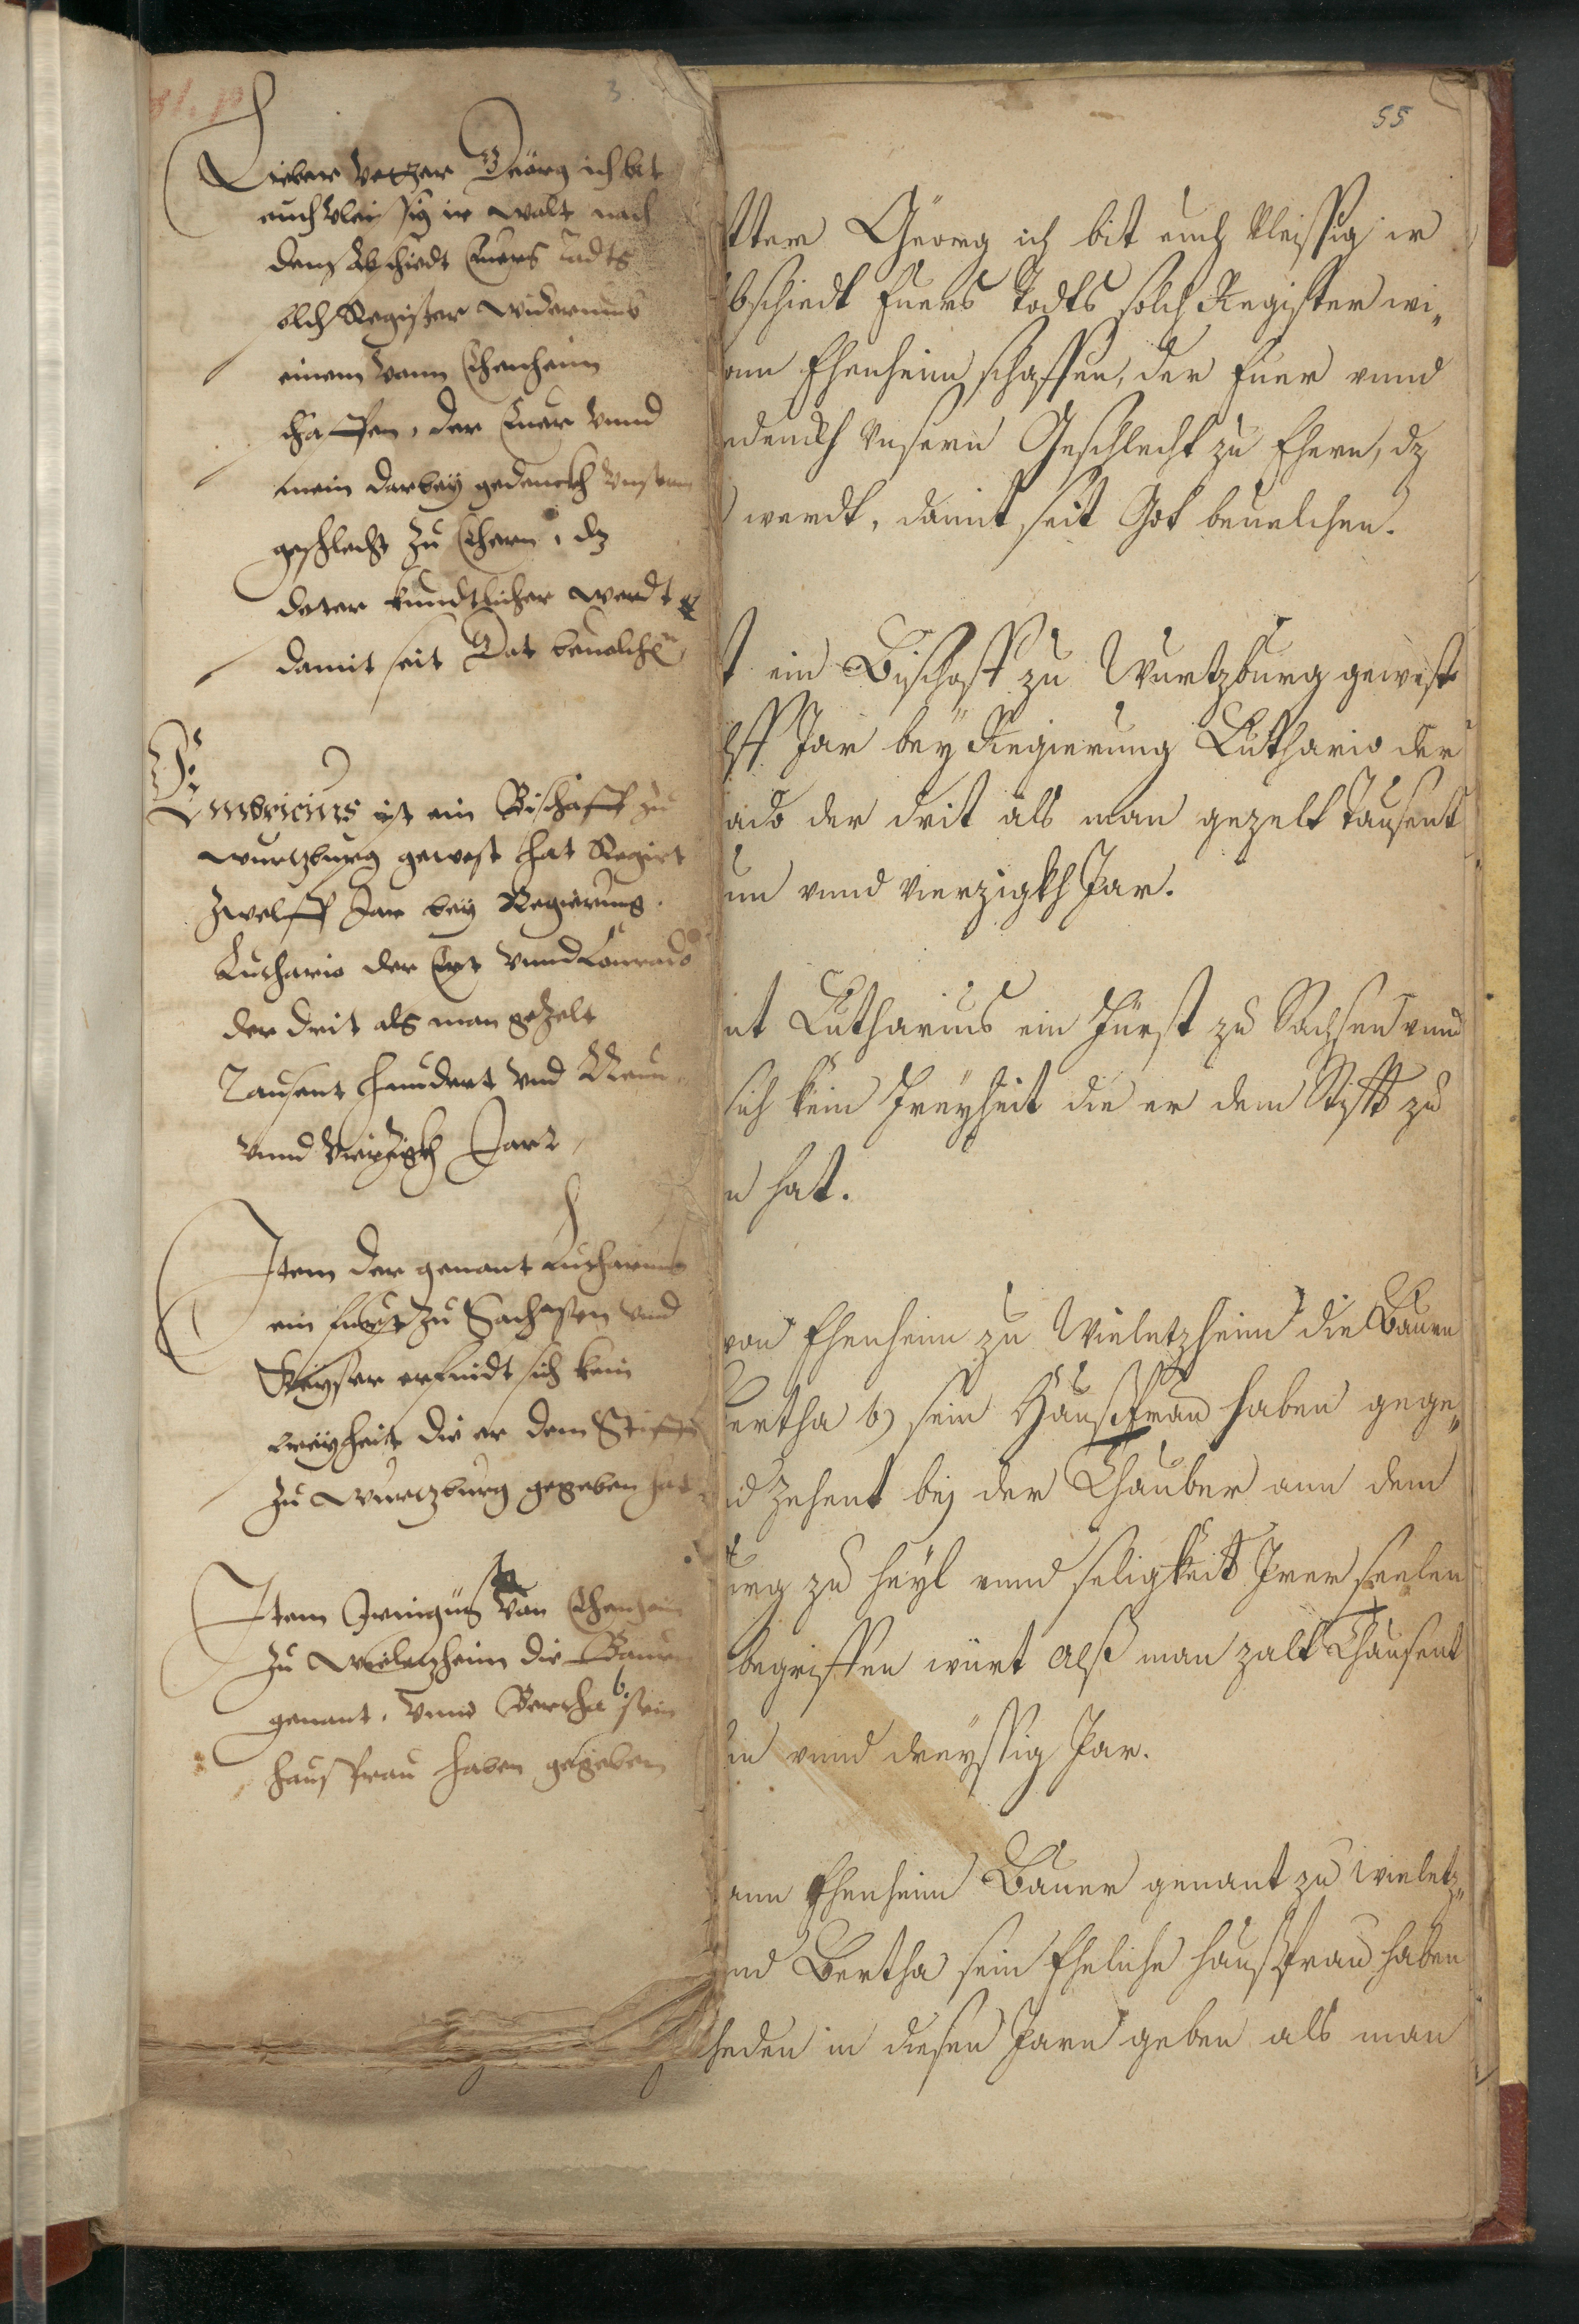 3.
Lieber Vetter Geörg ich bit
euch vleissig ir wolt nach
dem Abschiedt Euers Todts
solch Register widerumb
einem vonn Ehenheim
schaffen, der Euer vnnd
mein darbey gedenckh vnserm
geschlecht zu Ehern, dz
dater kundtlicher werdt
damit seit Got beuelchen
Embricius ist ein Bischoff zu
Wurtzburg gewest hat Regirt
zwelff Jar bey Regierung
Luthario der Erst vnnd Conrado
der drit als man gezelt
Tausent hundert vnd Neun
vnnd vierzigkh Jar
Item der genant Lutharius
ein Furst zu Sachssen vnd
Keyser erfindt sich kein
Freyheit die er dem Stifft
zu Wurtzburg gegeben hat
Item Iringus von Ehenheim
zu Wieletzheim die Bauren
genant, vnnd Bertha b sein
hausfrau haben gegeben
55
tter Geörg ich bit euch vleissig ir
bschiedt Euers Todts solch Register wi„
onn Ehenheim schaffen, der Euer vnnd
edenckh vnsern Geschlecht zu Ehern, dz
werdt, damit seit Got beuelchen.
t ein Bischoff zu Wurtzburg gewest
lff Jar bey Regierung Luthario der
ado der drit als man gezelt Tausent
un vnnd vierzigkh Jar.
nt Lutharius ein Fürst zu Sachsen vnnd
sich kein Freyheit die er dem Stifft zu
n hat.
von Ehenheim zu Wieletzheim die Bauern
Bertha b) sein Haußfrau haben gege„
nd zehent bej der Thauber ann dem
urg zu heyl vnnd seligkeit Irer seelen
begriffen würt alß man zalt Thausent
in vnnd dreyssig Jar.
onn Ehenheim Bauer genant zu Wieletz„
nd Bertha sein Eheliche haußfrau haben
heden in diesen Jarn geben als man